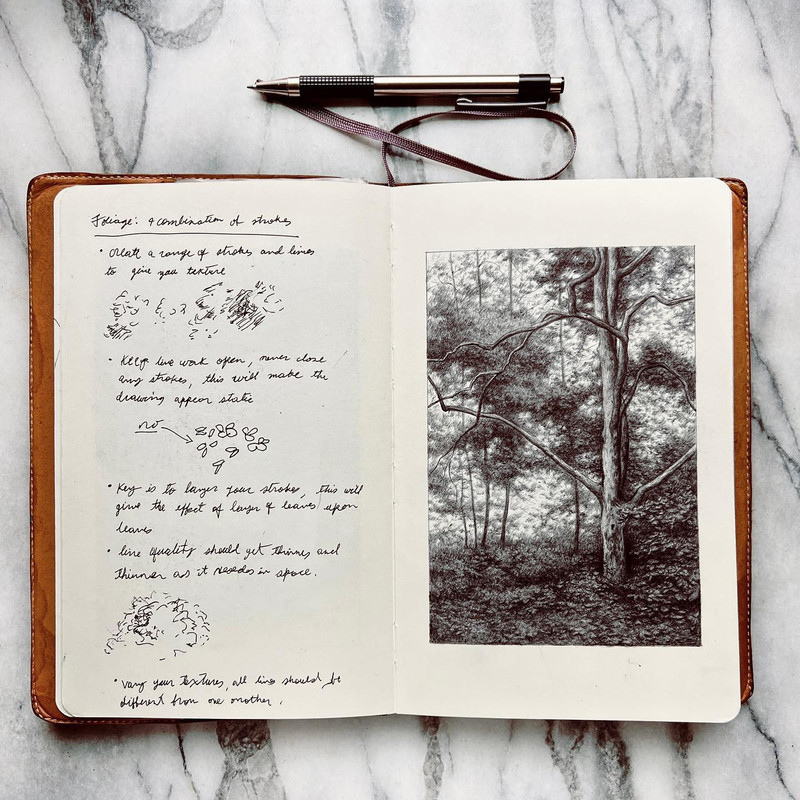 Foliage: a combination of strokes
• Create a range of strokes and lines
to give you texture
• Keep line work open, never close
any strokes, this will make the
drawing appear static
no
• Key is to layer your strokes, this will
give the effect of layer of leaves upon
leaves
• line quality should get thinner and
thinner as it recedes in space.
• Vary your textures, all lines should be
different from one another.